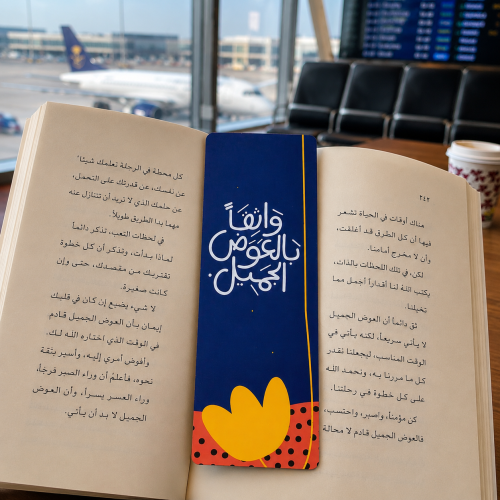 ٢٤٣
هناك أوقات في الحياة تشعر
فيها أن كل الطرق قد أغلقت،
وأن لا مخرج أمامنا.
لكن، في تلك اللحظات بالذات،
يكتب الله لنا أقداراً أجمل مما
تخيلنا.
ثق دائماً أن العوض الجميل
لا يأتي سريعاً، لكنه يأتي في
الوقت المناسب، ليجعلنا نقدر
كل ما مررنا به، ونحمد الله
على كل خطوة في رحلتنا.
كن مؤمناً، واصبر، واحتسب،
فالعوض الجميل قادم لا محالة
واثقاً
بالعوض
الجميل.
كل محطة في الرحلة تعلمك شيئاً
عن نفسك، عن قدرتك على التحمل،
عن حلمك الذي لا تريد أن تتنازل عنه
مهما بدا الطريق طويلاً.
في لحظات التعب، تذكر دائماً
لماذا بدأت، وتذكر أن كل خطوة
تقتربك من مقصدك، حتى وإن
كانت صغيرة.
لا شيء يضيع إن كان في قلبك
إيمان بأن العوض الجميل قادم
في الوقت الذي اختاره الله لك.
وأفوض أمري إليه، وأسير بثقة
نحوه، فأعلم أن وراء الصبر فرجاً،
وراء العسر يسراً، وأن العوض
الجميل لا بد أن يأتي.